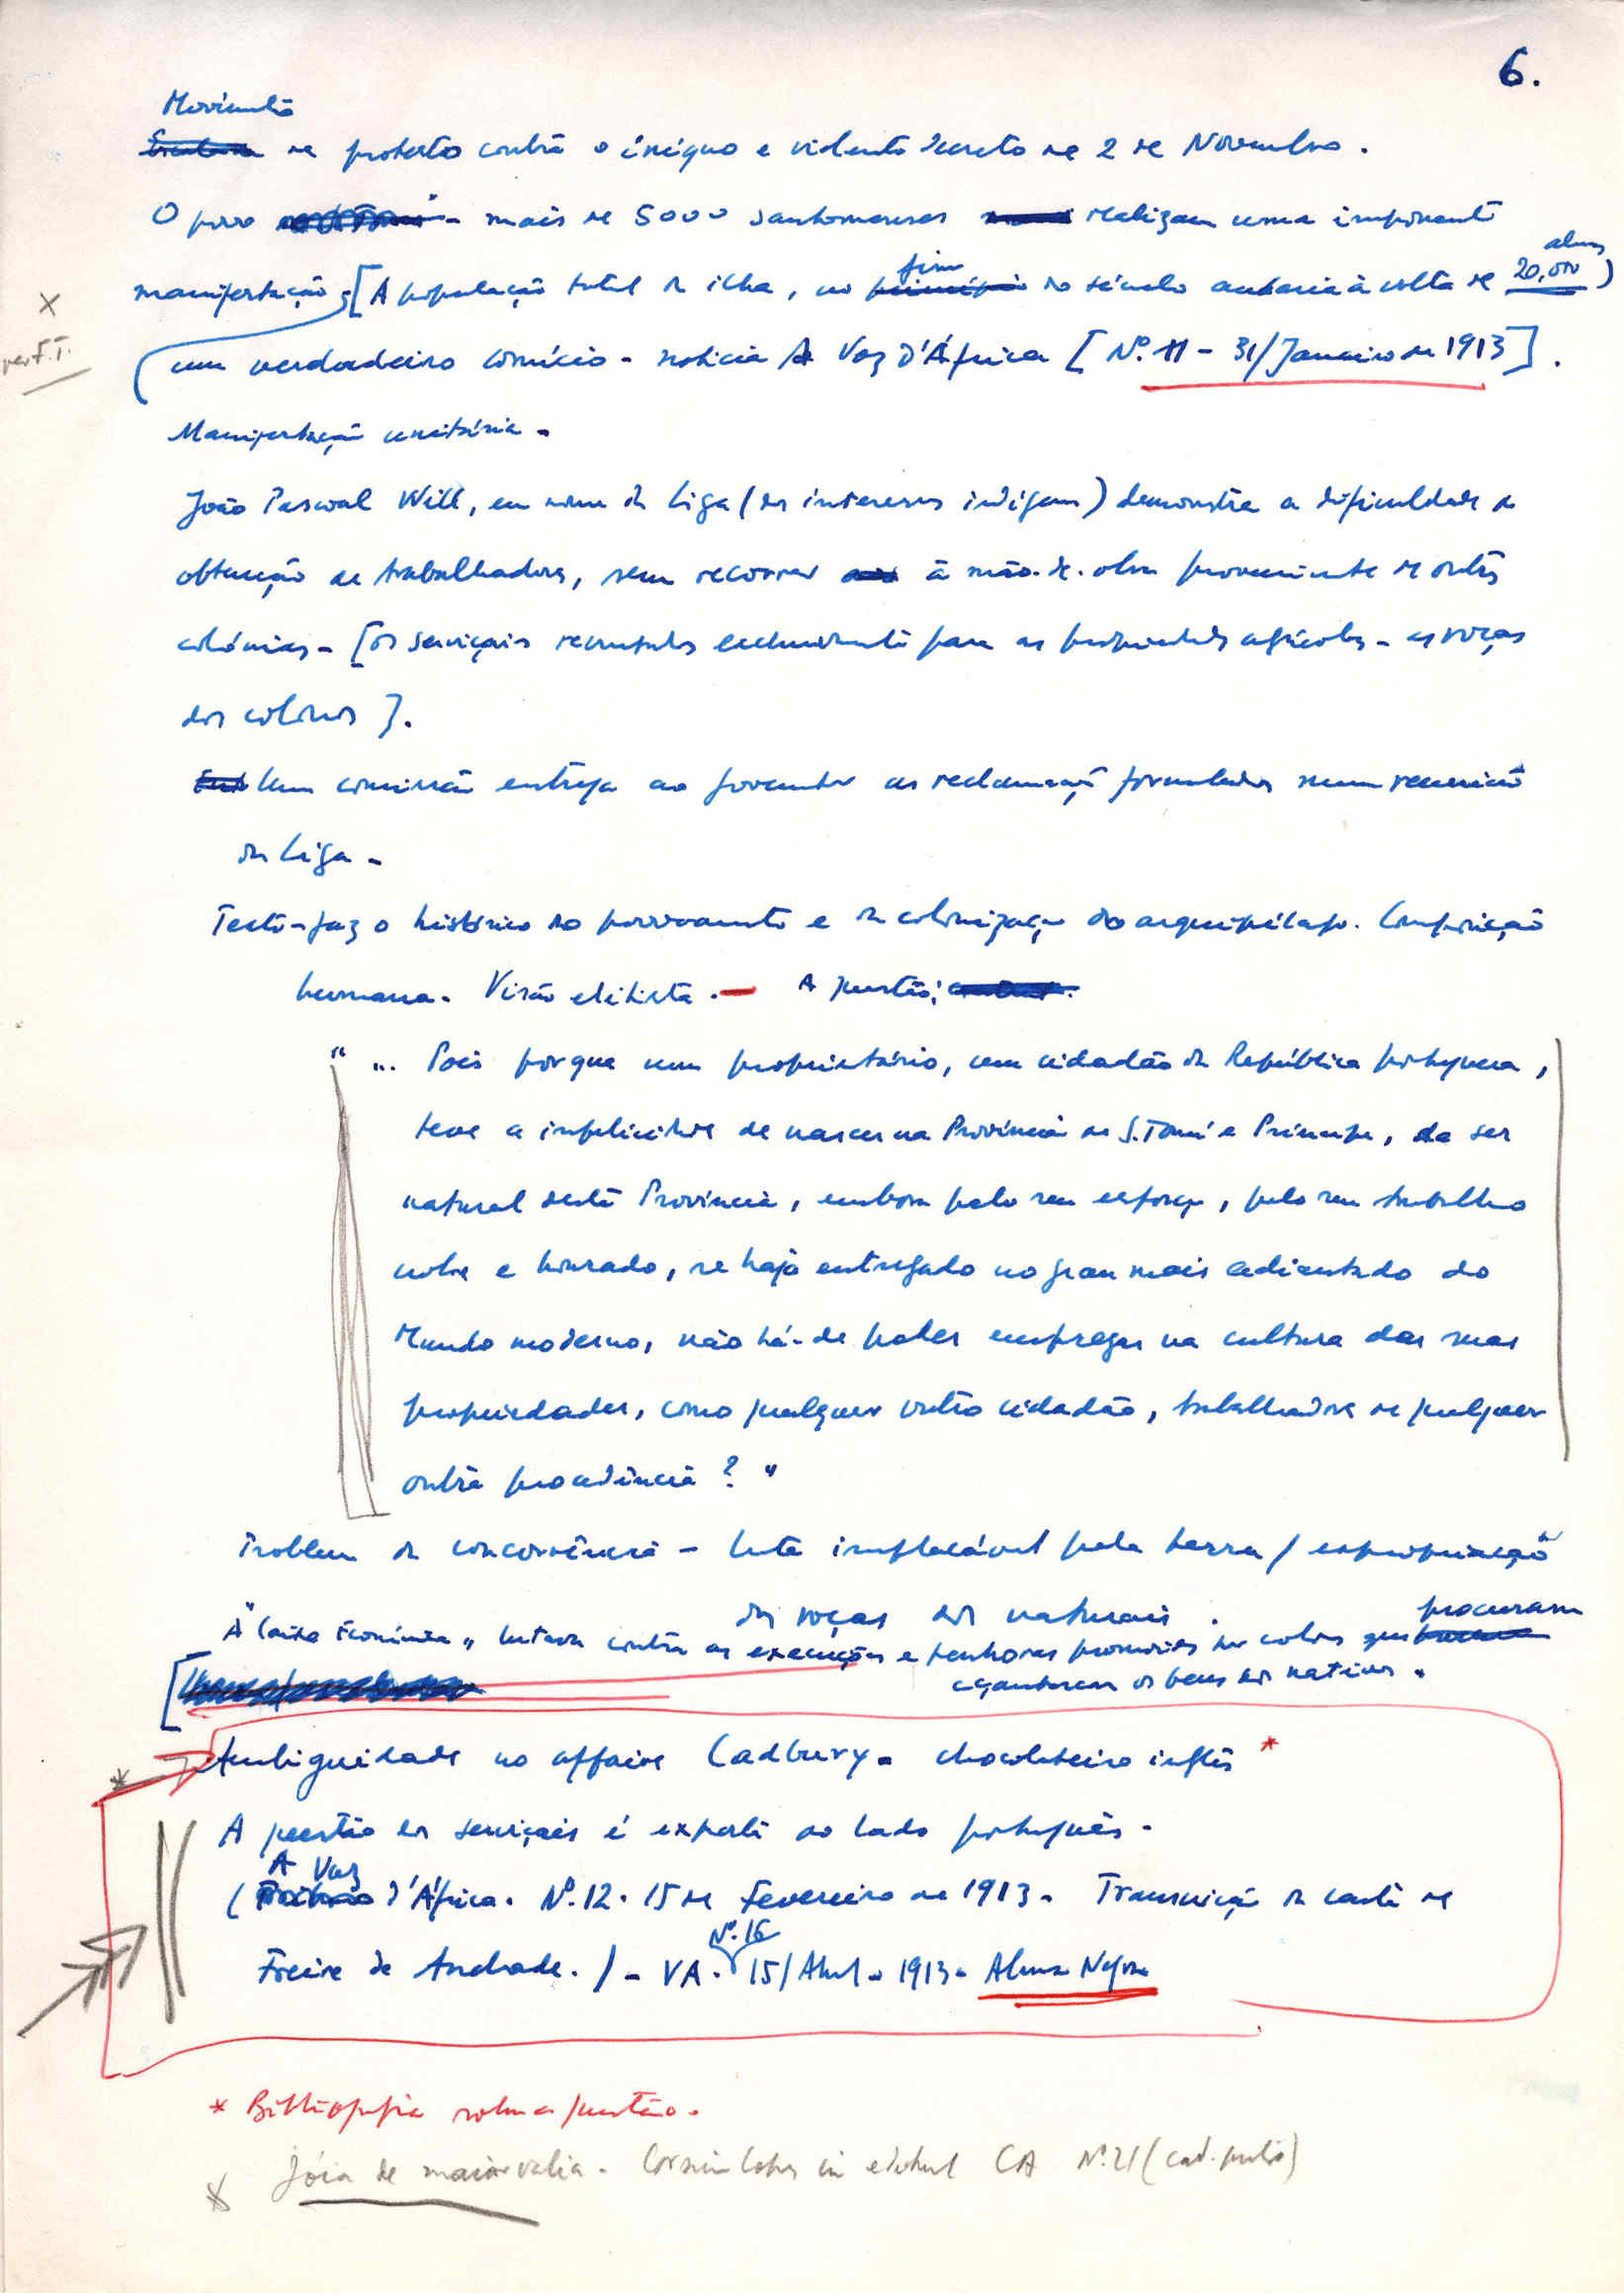 6.
Movimento
de protesto contra o iníquo e violento decreto de 2 de Novembro.
O povo - mais de 5000 santomenses realizam uma imponente
manifestação; [A população total da ilha, no fim do século andaria à volta de 20.000 almas)
um verdadeiro comício - noticia A Voz d'África [Nº. 11 - 31/Janeiro de 1913].
Manifestação unitária -
João Pascoal Will, em nome da Liga (dos interesses indígenas) demonstra a dificuldade da
obtenção de trabalhadores, sem recorrer à mão-de-obra proveniente de outras
colónias - [os serviçais recrutados exclusivamente para as propriedades agrícolas - as roças
dos colonos].
Uma comissão entrega ao governador as reclamações formuladas numa reunião
da Liga -
Texto - faz o histórico do povoamento e da colonização do arquipélago. Composição
humana. Visão elitista. - A questão:
" ... Pois porque um proprietário, um cidadão da República portuguesa,
teve a infelicidade de nascer na Província de S. Tomé e Príncipe, de ser
natural desta Província, embora pelo seu esforço, pelo seu trabalho
nobre e honrado, se haja entregado no grau mais adiantado do
Mundo moderno, não há-de poder empregar na cultura das suas
propriedades, como qualquer outro cidadão, trabalhadores de qualquer
outra procedência? "
Problema da concorrência - luta implacável pela terra / expropriação
das roças dos naturais.
A "Caixa Económica" lutava contra as execuções e penhoras promovidas por colonos que procuram
açambarcar os bens dos nativos.
Ambiguidade no affaire Cadbury - chocolateiro inglês *
A questão dos serviçais é exposta do lado português -
(A Voz d'África. Nº. 12. 15 de Fevereiro de 1913. Transcrição da carta de
Freire de Andrade.) - VA. Nº. 16 15/Abril - 1913 - Almada Negreiros
* Bibliografia sobre a questão.
Jóia de mais valia - in editorial CA Nº. 21